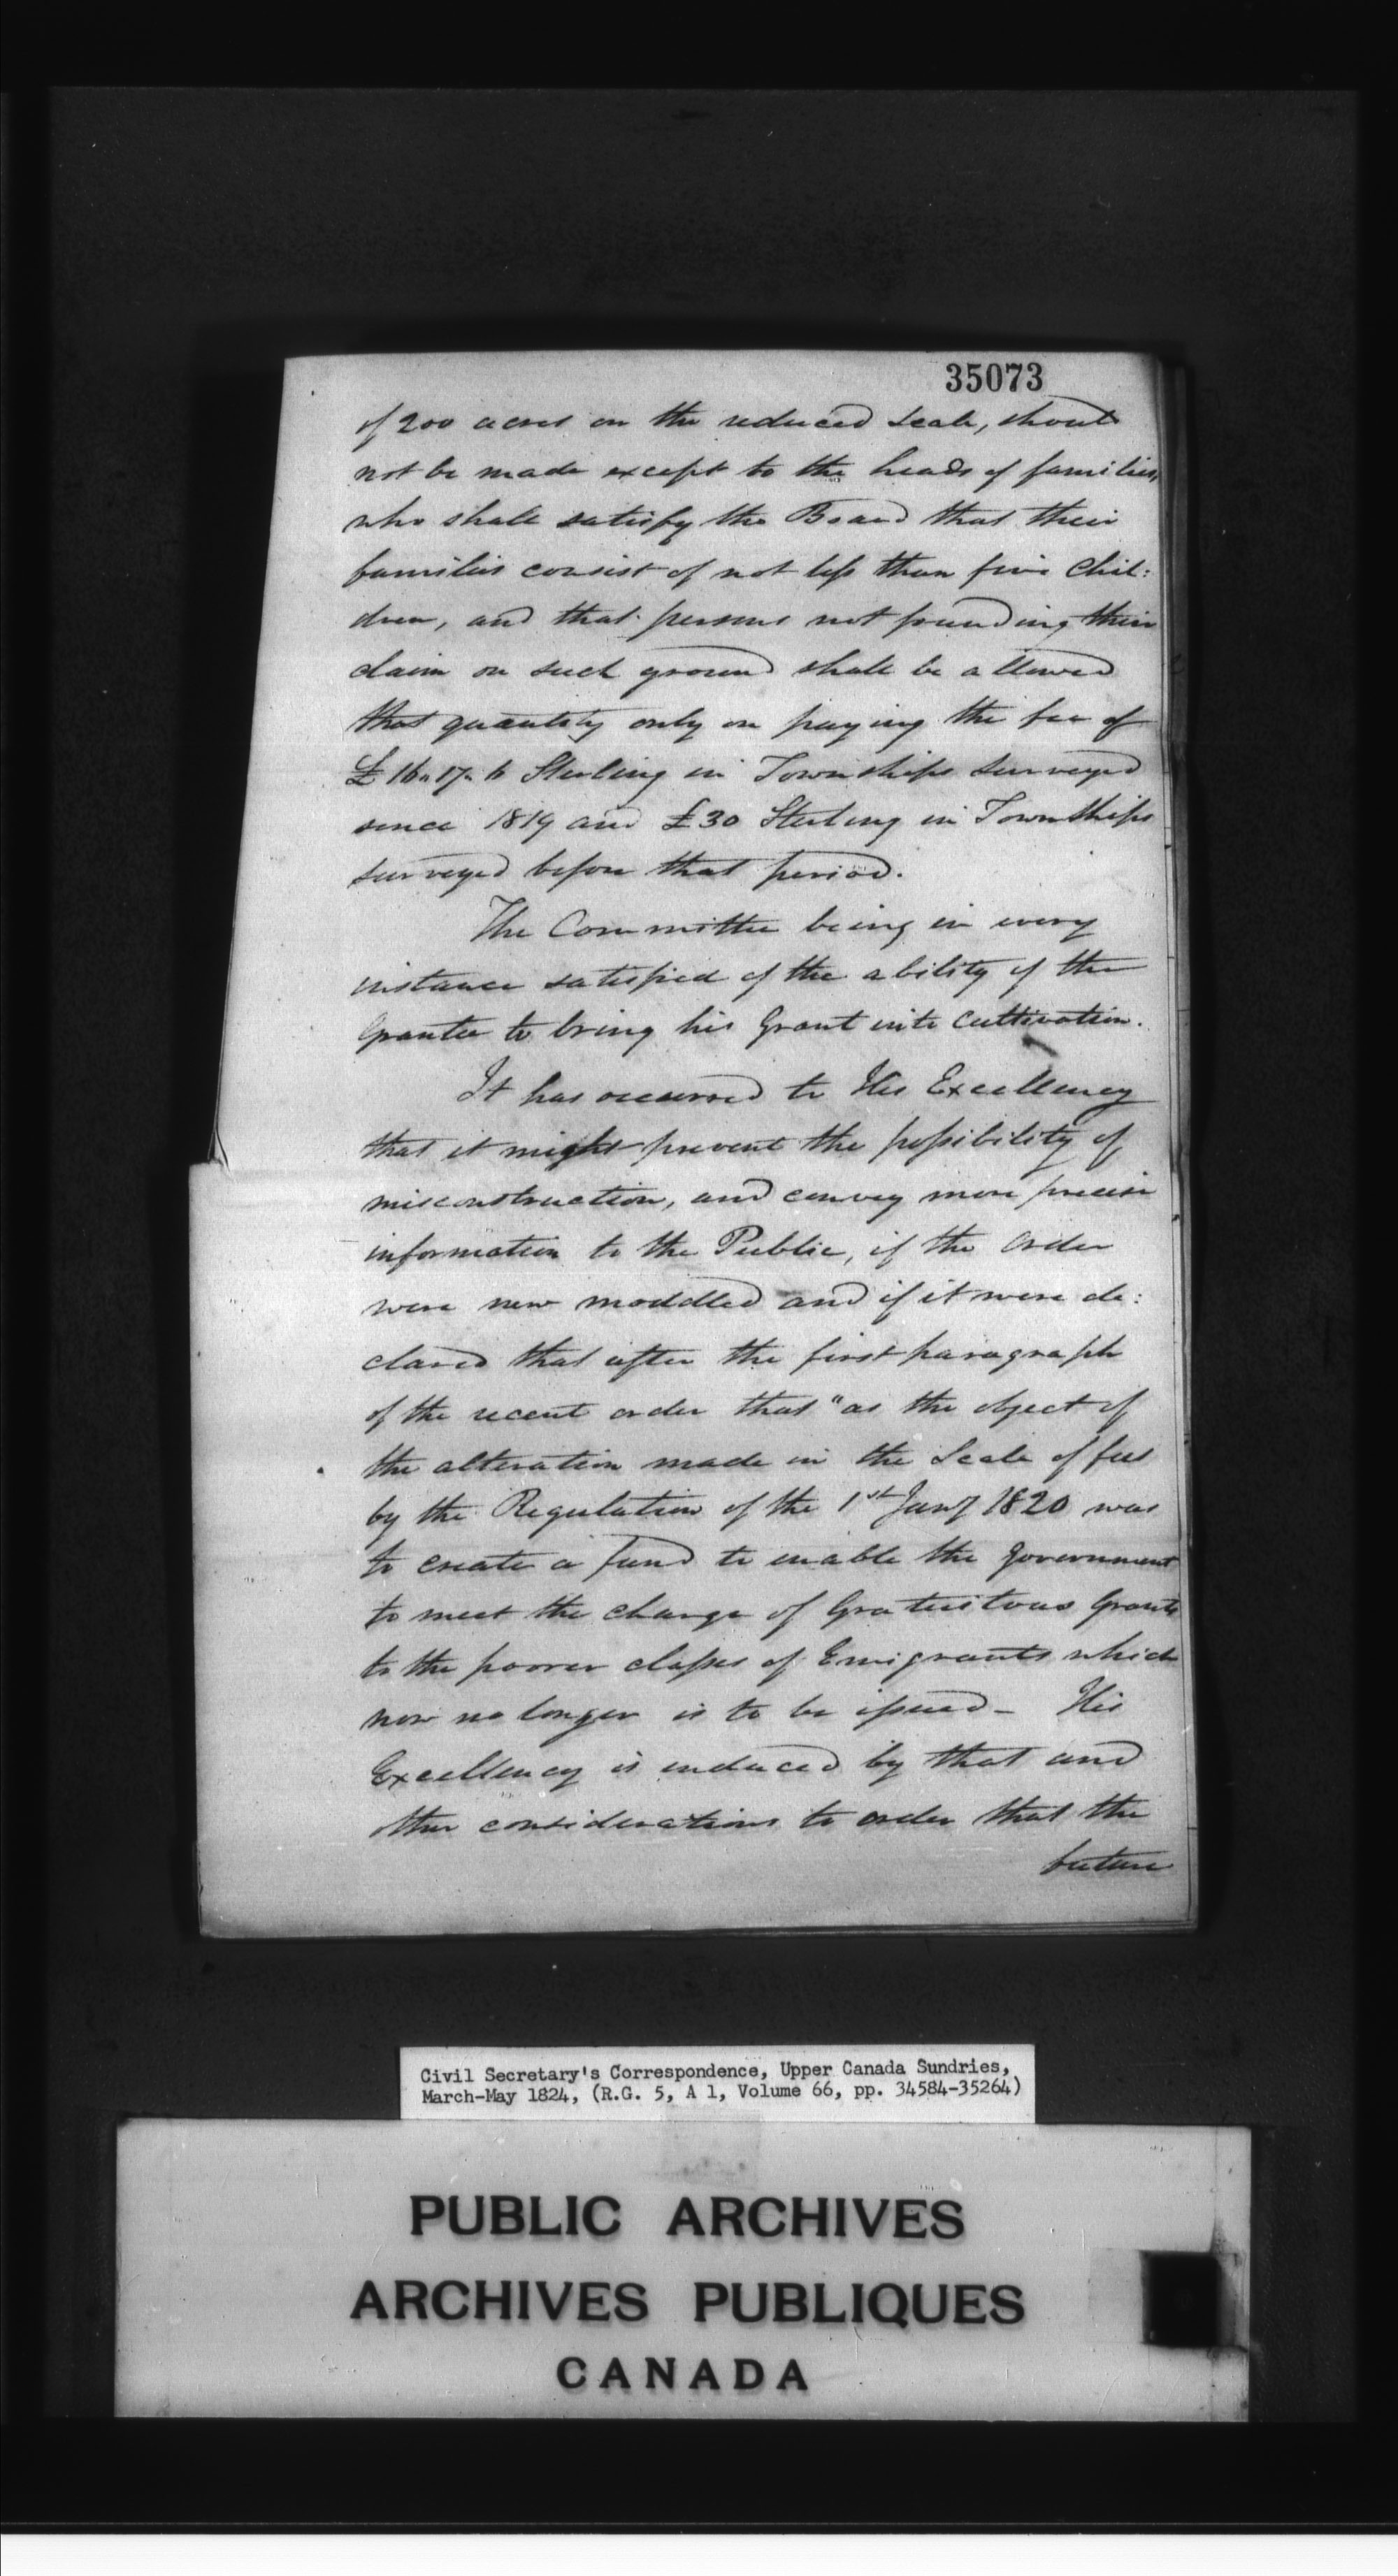 35073
of 200 acres on the reduced scale, should
not be made except to the heads of families,
who shall satisfy the Board that their
families consist of not less than five Chil:
dren, and that persons not founding their
claim on such ground shall be allowed
that quantity only on paying the fee of
£ 16.17.6 Sterling in Townships surveyed
since 1819 and £30 Sterling in Townships
surveyed before that period.
The Committee being in every
instance satisfied of the ability of the
Grantee to bring his Grant into cultivation.
It has occurred to His Excellency
that it might prevent the possibility of
misconstruction, and convey more precise
information to the Public, if the Order
were new moddled and if it were de:
clared that after the first paragraph
of the recent order that "as the object of
the alteration made in the Scale of fees
by the Regulation of the 1st Jany 1820 was
to create a fund to enable the Government
to meet the charge of Gratuitous Grants
to the poorer classes of Emigrants which
now no longer is to be issued - His
Excellency is induced by that and
other considerations to order that the
future
Civil Secretary's Correspondence, Upper Canada Sundries,
March-May 1824, (R.G. 5, A 1, Volume 66, pp. 34584-35264)
PUBLIC ARCHIVES
ARCHIVES PUBLIQUES
CANADA